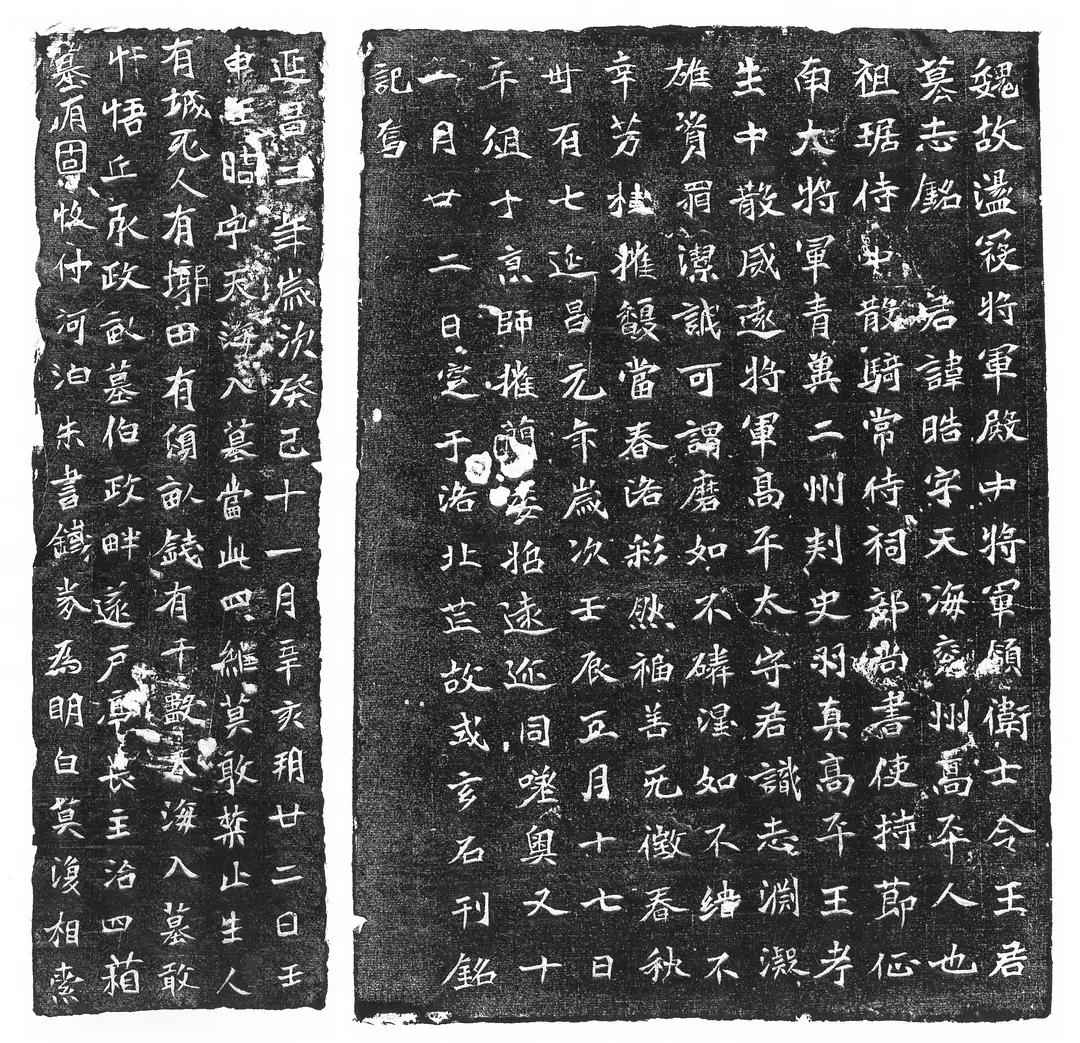 魏故盪寇將軍殿中將軍領衛士令王君
墓志銘 君諱晧字天海兗州高平人也
祖琚侍中散騎常侍祠部尚書使持節征
南大將軍青冀二州刺史羽真高平王考
生中散威遠將軍高平太守君識志淵凝
雄資眉潔誠可謂磨如不磷涅如不緇不
幸芳桂摧馥當春洛彩然福善无徵春秋
卅有七延昌元年歲次壬辰正月十七日
卒俎于京師摧蘭委遠迩同嗟奥又十
一月廿二日窆于洛北芒故或玄石刊銘
記焉
延昌二年歲次癸巳十一月辛亥朔廿二日壬
申王晧字天海入墓當此四維莫敢禁止生人
有城死人有墎田有傾畝錢有千數天海入墓敢
忤悟丘承政畝墓伯政畔遂戶亭長主治四葙
墓有固付河泊朱書鐵券為明白莫復相索